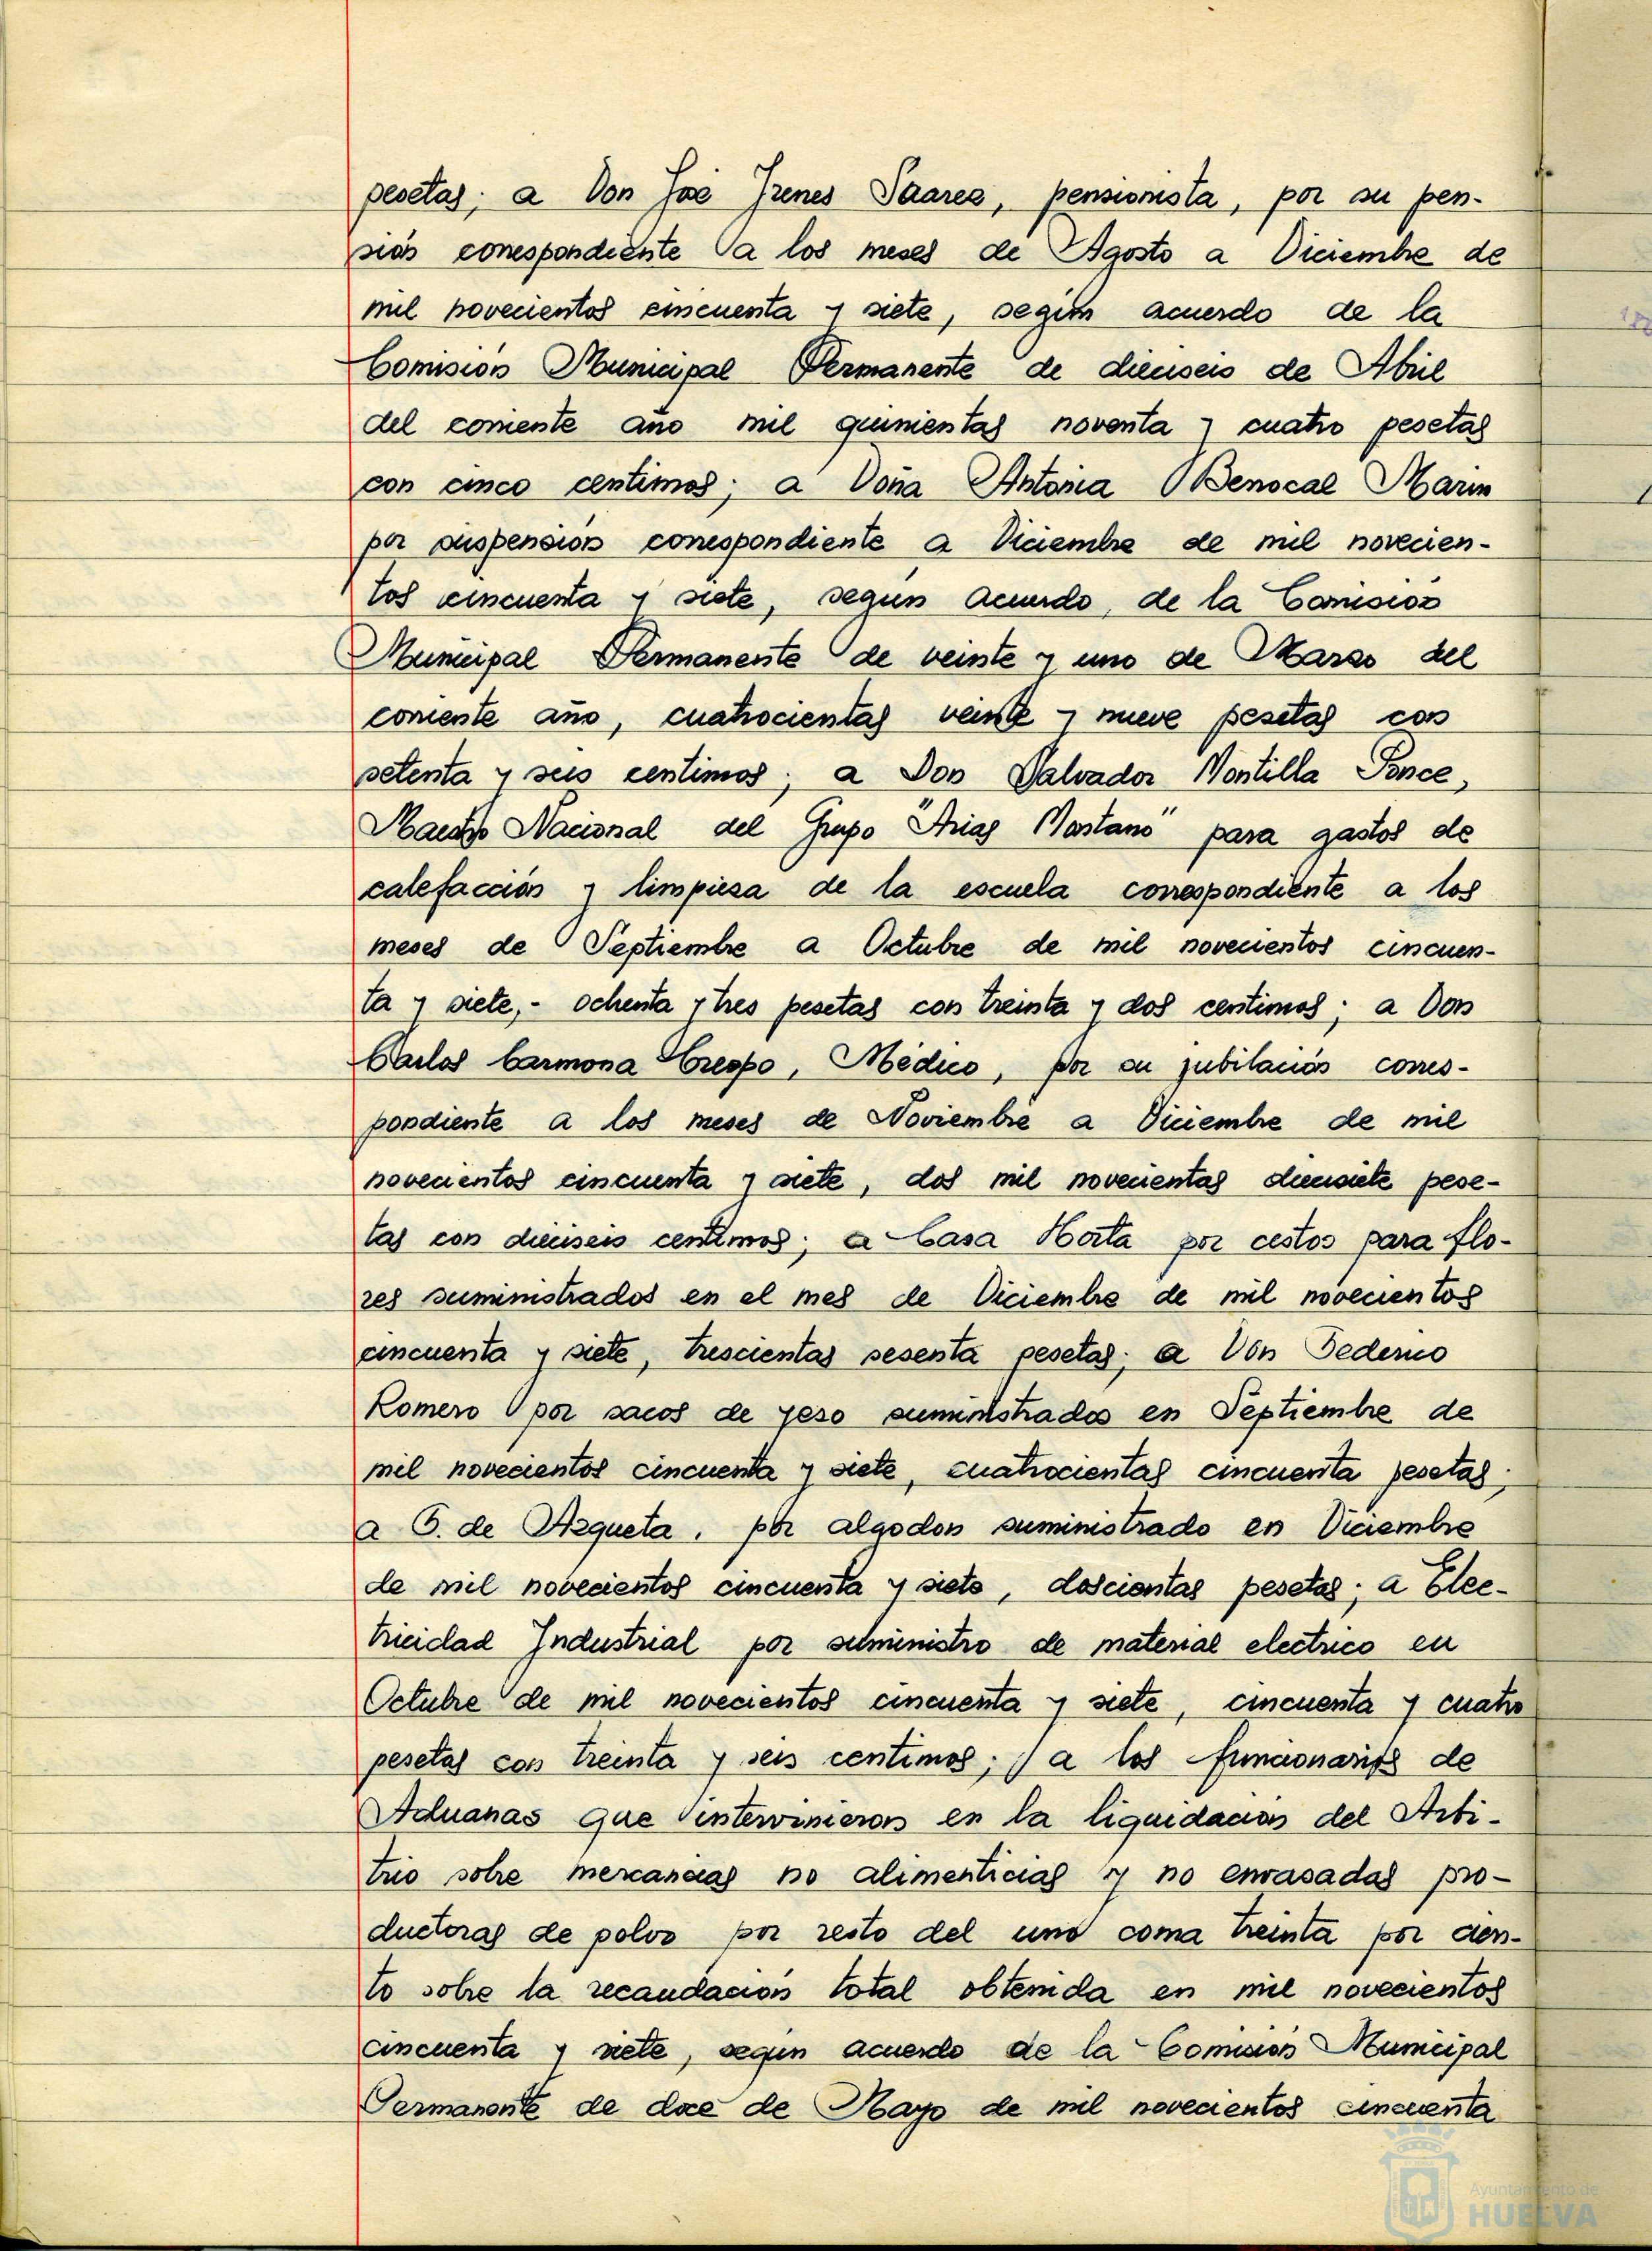 pesetas; a Don José Irenes Suarez, pensionista, por su pen-
sión correspondiente a los meses de Agosto a Diciembre de
mil novecientos cincuenta y siete, según acuerdo de la
Comisión Municipal Permanente de dieciseis de Abril
del corriente año mil quinientas noventa y cuatro pesetas
con cinco centimos; a Doña Antonia Benocal Marin
por suspensión correspondiente a Diciembre de mil novecien-
tos cincuenta y siete, según acuerdo, de la Comisión
Municipal Permanente de veinte y uno de Marzo del
corriente año, cuatrocientas veinte y nueve pesetas con
setenta y seis centimos; a Don Salvador Montilla Ponce,
Maestro Nacional del Grupo "Arias Montano" para gastos de
calefacción y limpieza de la escuela correspondiente a los
meses de Septiembre a Octubre de mil novecientos cincuen-
ta y siete,- ochenta y tres pesetas con treinta y dos centimos; a Don
Carlos Carmona Crespo, Médico, por su jubilación corres-
pondiente a los meses de Noviembre a Diciembre de mil
novecientos cincuenta y siete, dos mil novecientas diecisiete pese-
tas con dieciseis centimos; a Casa Horta por cestos para flo-
res suministrados en el mes de Diciembre de mil novecientos
cincuenta y siete, trescientas sesenta pesetas; a Don Federico
Romero por sacos de yeso suministrados en Septiembre de
mil novecientos cincuenta y siete, cuatrocientas cincuenta pesetas;
a G. de Azqueta, por algodon suministrado en Diciembre
de mil novecientos cincuenta y siete, doscientas pesetas; a Elec-
tricidad Industrial por suministro de material electrico en
Octubre de mil novecientos cincuenta y siete, cincuenta y cuatro
pesetas con treinta y seis centimos; a los funcionarios de
Aduanas que intervinieron en la liquidación del Arbi-
trio sobre mercancias no alimenticias y no envasadas pro-
ductoras de polvo por resto del uno coma treinta por cien-
to sobre la recaudación total obtenida en mil novecientos
cincuenta y siete, según acuerdo de la Comisión Municipal
Permanente de doce de Mayo de mil novecientos cincuenta
Ayuntamiento de
HUELVA